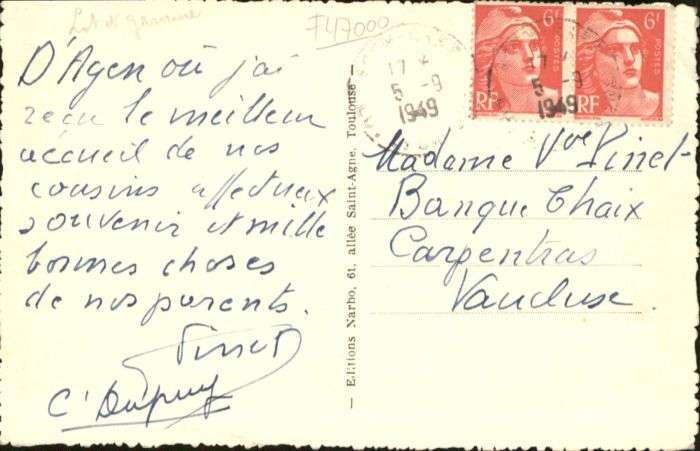 Lot et Garonne
F47000
D'Agen où j'ai
reçu le meilleur
accueil de nos
cousins affectueux
souvenir et mille
bonnes choses
de nos parents.
Pinet
C. Dupuy
— Editions Narbo, 61, allée Saint-Agne, Toulouse —
17 *
5 -9
1949
6F
POSTES
RF
17 *
5 -9
1949
6F
POSTES
RF
Madame Vve Pinet
Banque Chaix
Carpentras
Vaucluse.